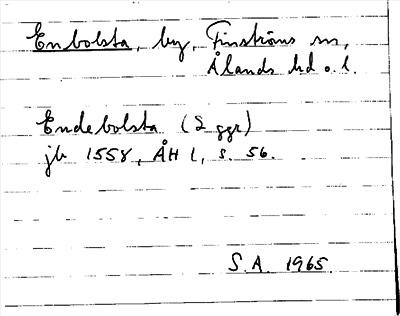 Enbolsta, by, Finströms sn,
Ålands hd o. l.
Endebolsta (2 ggr)
jb 1558, ÅH 1, s. 56.
S.A. 1965.